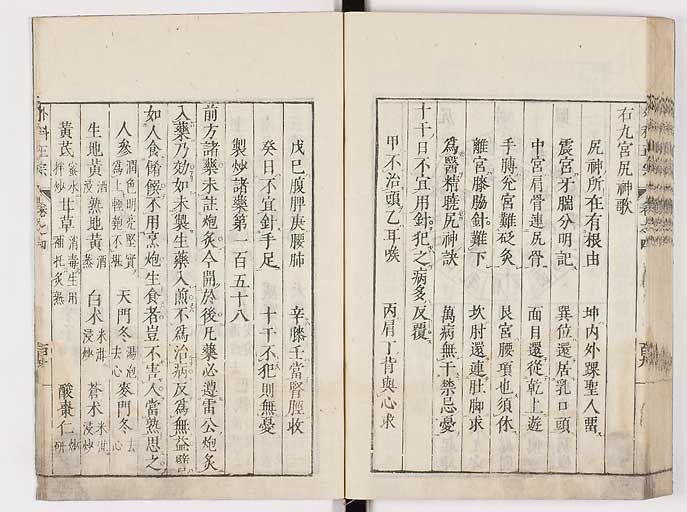 右九宮尻神歌
尻神所在有根由　坤内外踝聖人畱
震宮牙腨分明記　巽位還居乳口頭
中宮肩骨連尻骨　面目還從乾上遊
手膊兊宮難砭灸　艮宮腰項也須休
離宮膝脇針難下　坎肘還連肚脚求
爲醫精曉尻神訣　萬病無干禁忌憂
十干日不宜用針犯之病多反覆
甲不治頭乙耳喉　丙肩丁背與心求
戊巳腹脾庚腰肺　辛膝壬當腎脛收
癸日不宜針手足　十干不犯則無憂
製炒諸藥第一百五十八
前方諸藥未註炮灸今開於後凡藥必遵雷公炮灸
入藥乃効如未製生藥入煎不爲治病反爲無益譬
如人食餚饌不用烹炮生食者豈不害人當熟思之
人參潤色明亮堅實爲上輕匏不堪　天門冬湯泡去心　麥門冬去心
生地黃酒浸　熟地黃酒蒸　白朮米泔浸炒　蒼朮米泔浸炒
黃芪蜜水拌炒　甘草消毒生用補托炙熟　酸棗仁炒研
外科正宗　卷之四